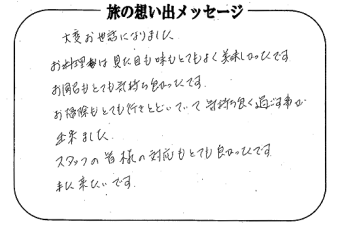 旅の想い出メッセージ
大変お世話になりました
お料理は見た目も味もとてもよく美味しかったです
お風呂もとても気持ち良かったです.
お掃除もとても行きとどいていて気持ち良く過ごす事が
出来ました.
スタッフの皆様の対応もとても良かったです
また来たいです.